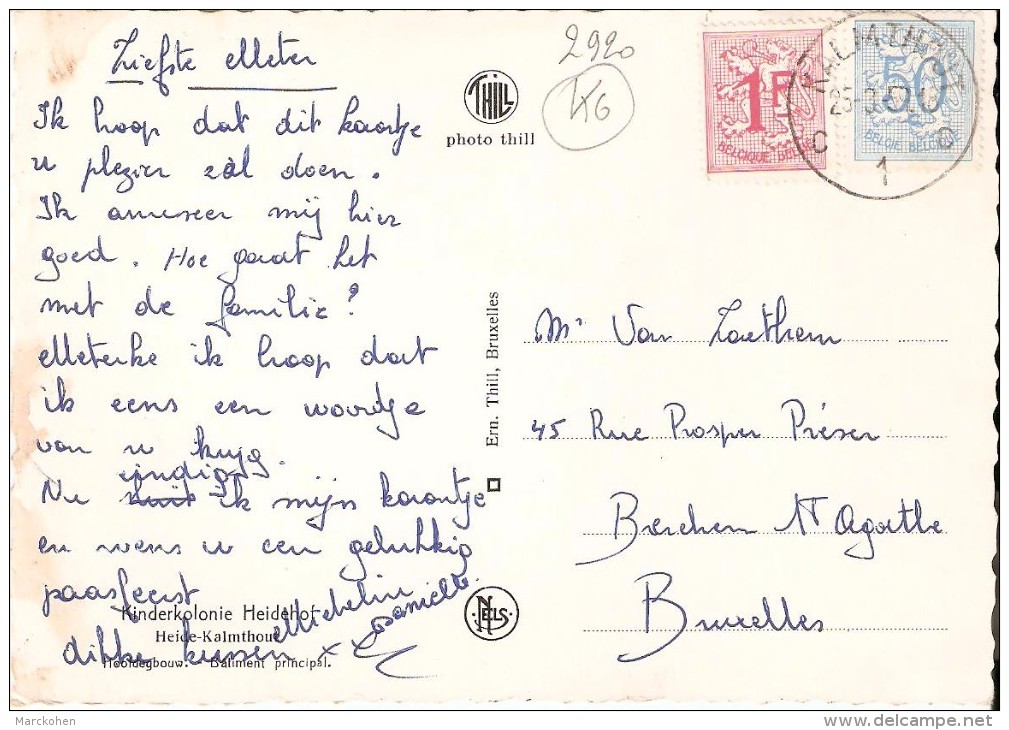 Liefste Meter
Ik hoop dat dit kaartje
u plezier zàl doen.
Ik amuseer mij hier
goed. Hoe gaat het
met de familie?
Meterke ik hoop dat
ik eens een woordje
van u krijg.
eindig
Nu sluit ik mijn kaartje
en wens u een gelukkig
paasfeest
dikke kussen xx
Danielle
Kinderkolonie Heidehof
Heide-Kalmthout
Hoofdegbouw. - Bâtiment principal.
THILL
photo thill
Ern. Thill, Bruxelles
NELS
2920
1F
BELGIQUE BELGIE
50
BELGIE BELGIQUE
KALMTHOUT
C 1 C
Mr Van Laethem
45 Rue Prosper Préser
Berchem St Agathe
Bruxelles
Marckohen
delcampe.net